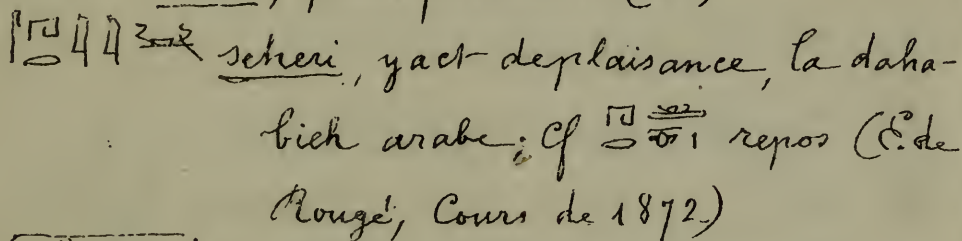 seheri, yact deplaisance, la daha-
bieh arabe; Cf repos (E. de
Rougé, Cours de 1872)